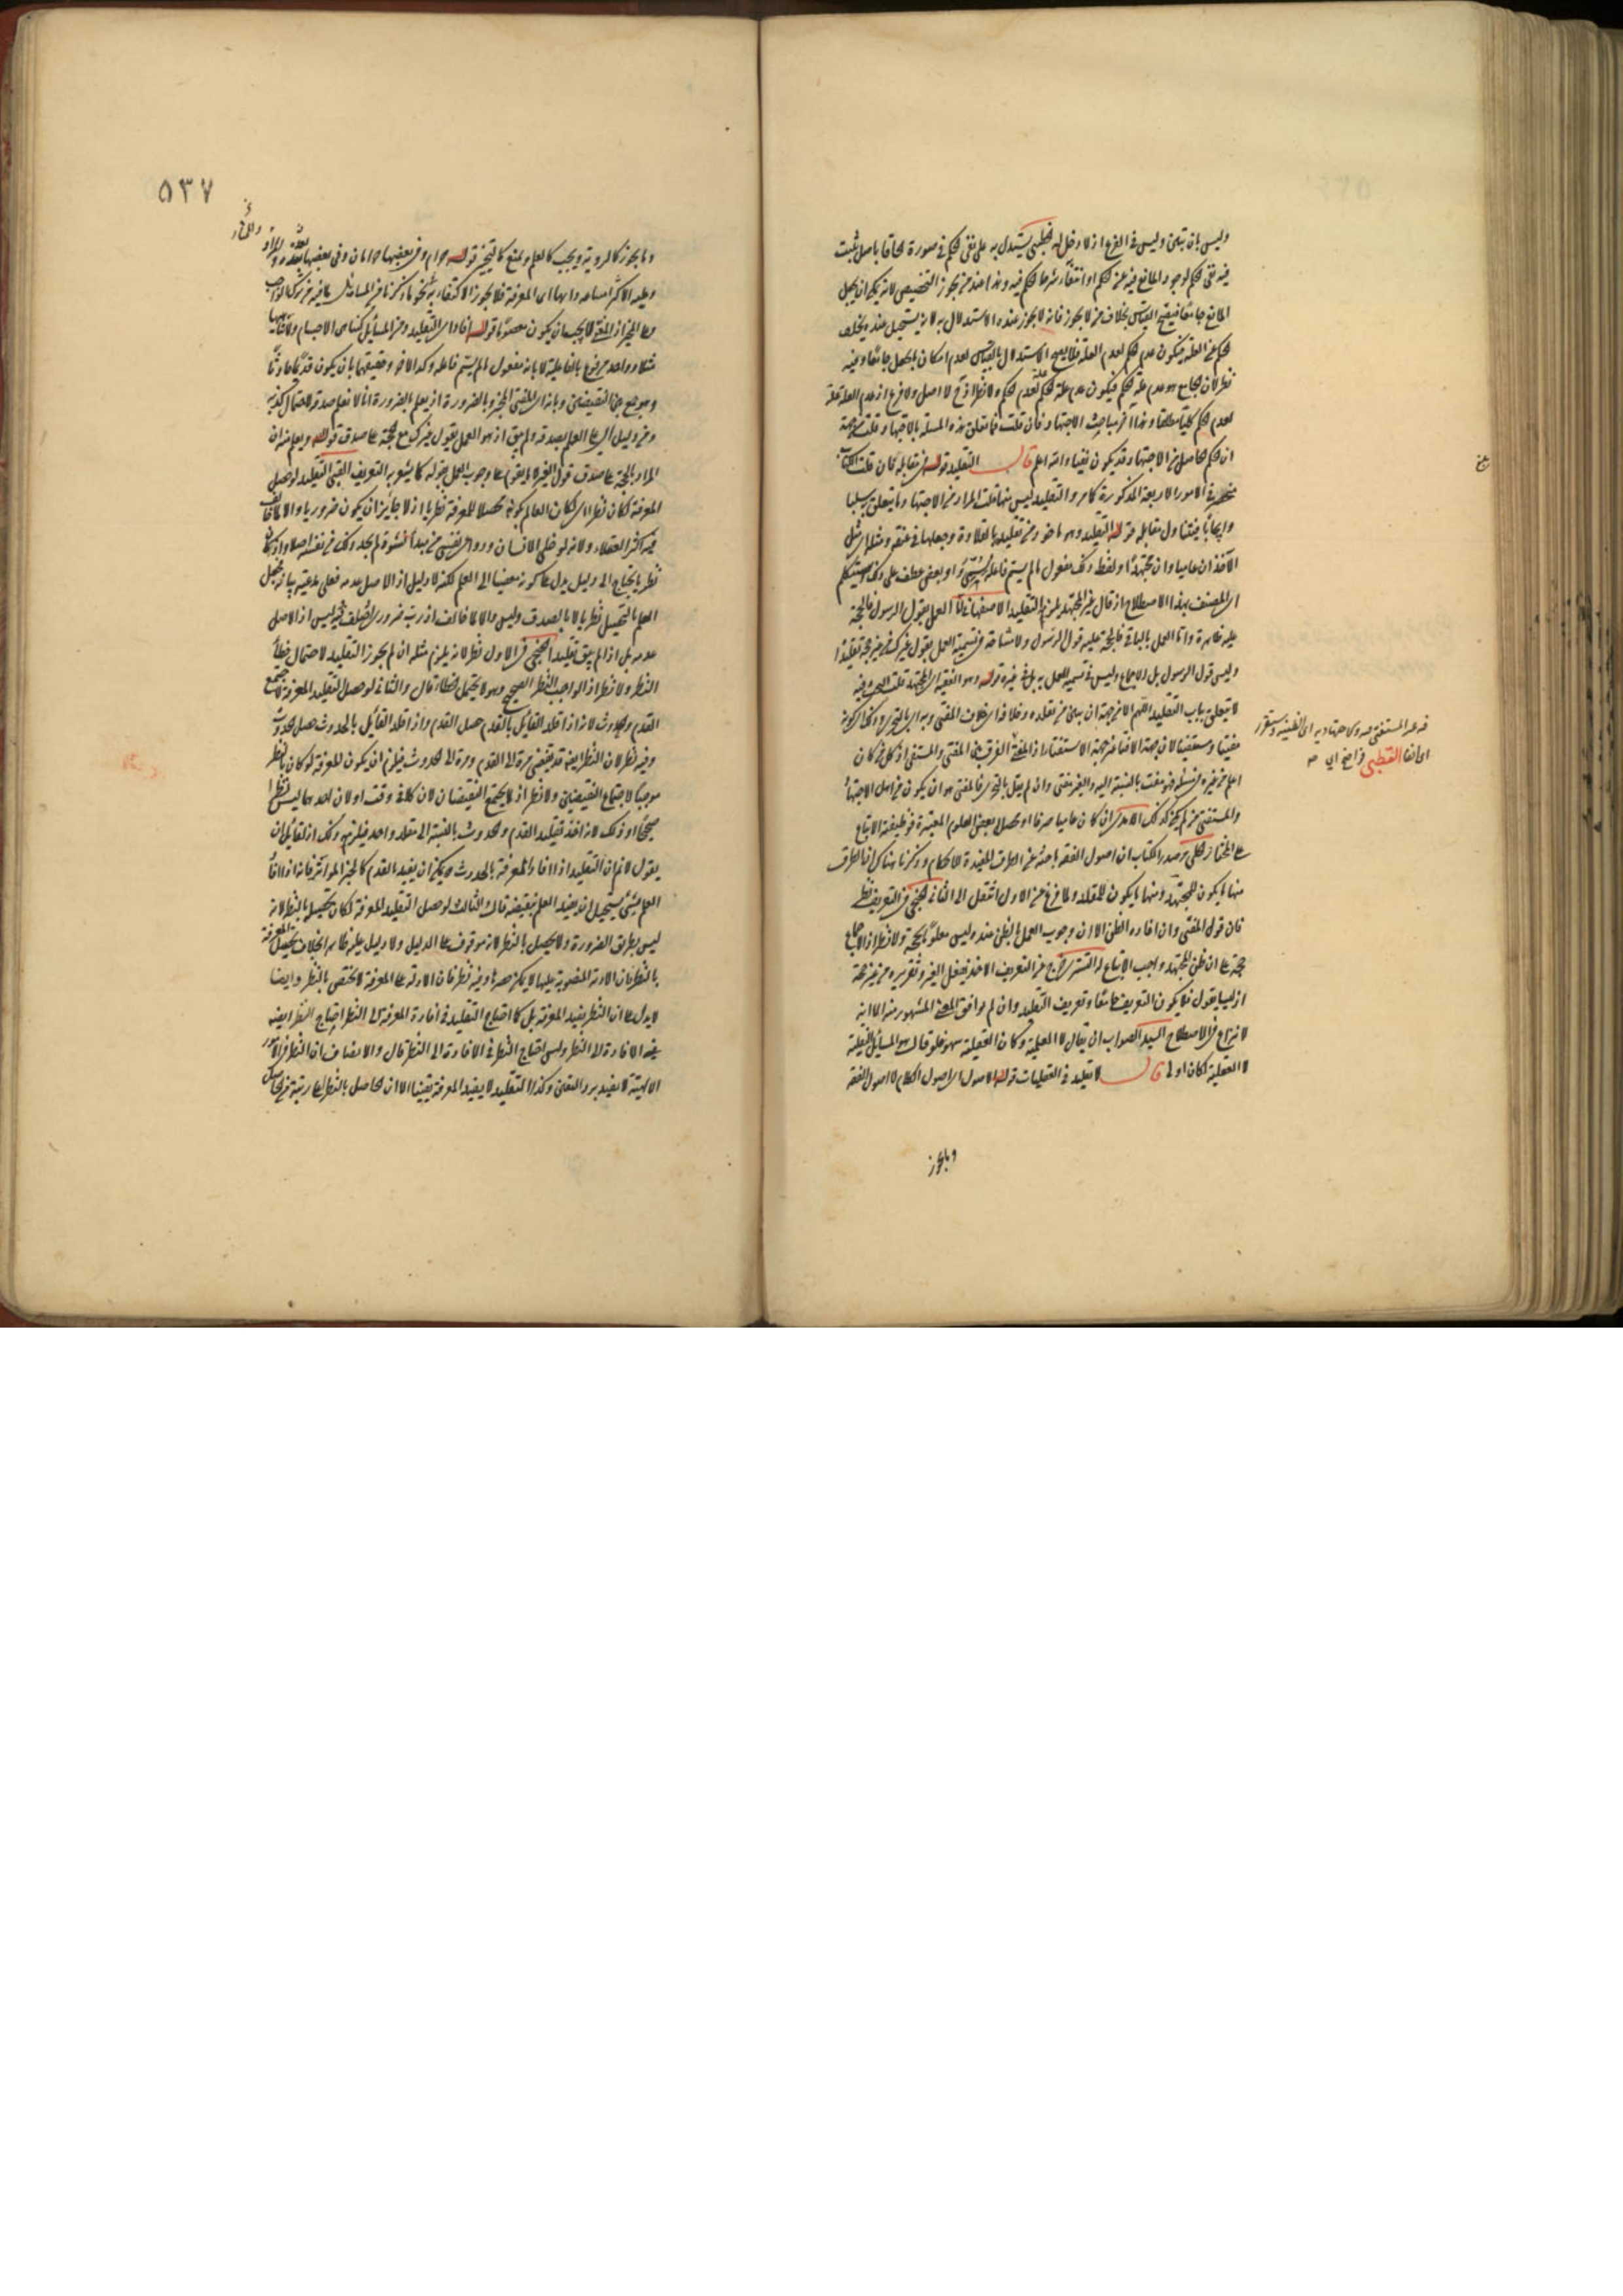 وليس بان تبين وليس في الفرع اذ لا دخل له الخطيبي يستدل به على نفي الحكم في صورة الحاقا باصل ثبت
فيه نفي الحكم لوجود المانع فيه عن الحكم او انتفاء شرط الحكم فيه وهذا عند من يجوز التخصيص لانه يمكن ان يجعل
المانع جامعا فيقيح القياس بخلاف من لا يجوز فانه لا يجوز عنده الاستدلال به لانه يستحيل عنده تخلف
الحكم عن العلة فيكون عدم الحكم لعدم العلة فلا يصح الاستدلال بالقياس لعدم امكان الجعل جامعا وفيه
نظر لان الجامع هو عدم علة الحكم فيكون عدم علة الحكم علة لعدم الحكم ولا نظر اذ ح لا اصل ولا فرع اذ عدم العلة علة
لعدم الحكم كلية مطلقا وهذا اخر مباحث الاجتهاد فان قلت فما تعلق هذه المسئلة بالاجتهاد قلت من جهة
ان الحكم الحاصل من الاجتهاد قد يكون نفيا والله اعلم قال التقليد قوله في مقابله فان قلت الكتاب
منحصر في الامور الاربعة المذكورة كما مر والتقليد ليس منها قلت المراد من الاجتهاد وما يتعلق به سلبا
وايجابا فيتناول مقابله قوله التقليد وهو ماخوذ من تقليده بالقلادة وجعلها في عنقه و مثل
الآخذ ان عاميا وان مجتهدا ولفظ ذلك مفعول ما لم يسم فاعله او بعض عطف على ذلك وسيتكلم
اي المصنف بهذا الاصطلاح اذ قال غير المجتهد يلزمه التقليد الاصفهاني اما العمل بقول الرسول فالحجة
عليه ظاهرة واما العمل بالباقي فالحجة عليه قول الرسول ولا مشاحة في تسمية العمل بقول غيرك من غير حجة تقليدا
وليس قول الرسول بل ولا الاجماع وليس في تسمية العمل به بل في غيره قوله وهو الفقيه اي المجتهد قلت البحث فيه
لا يتعلق بباب التقليد اللهم الا من جهة ان يبين من تقلده وخلافه اي خلاف المفتي وبه اي بالتجزي وذلك اي كونه
مفتيا ومستفتيا لان جهة الافتاء غير جهة الاستفتاء اذ المفتي الفرق بين المفتي والمستفتي اذ كل من كان
اعلم من غيره لمسئلة فهو مفت بالنسبة اليه والغير مفتي وان لم يقل بالتجزي فالمفتي هو ان يكون من اهل الاجتهاد
والمستفتي من لم يكن كذلك الامدي ان كان عاميا صرفا او تحصل بعض العلوم المعتبرة فوظيفته الاتباع
على المختار الحلي مر صدر الكتاب ان اصول الفقه باحثة عن الطرق المفيدة للاحكام وذكرنا هناك ان الطرق
منها ما يكون للمجتهد ومنها ما يكون للمقلد ولما فرغ من الاول انتقل الى الثاني الخنجي في التعريف نظر
فان قول المفتي وان افاده الظن الا ان وجوب العمل بالظن عنده ليس معلوما بحجة ولا نظر اذ الاجماع
حجة على ان ظن المجتهد واجب الاتباع له التستري اخرج عن التعريف الاخذ بفعل الغير وتقريره من غير حجة
اذ ليسا بقول فلا يكون التعريف جامعا وتعريف التقليد وان لم يوافق المعنى المشهور منه الا انه
لا نزاع في الاصطلاح السيد الصواب ان يقال لا العملية وكان العقيلة سهو فلو قال هو المسائل النقلية
لا العقلية لكان اولى قال لا تقليد في العقليات قوله الاصول اي اصول الكلام لا اصول الفقه
وما يجوز
فه عد المستفتي فيه وكل اجتهاديه اي الظنية وسيقرر
اي لفظ القطبي
٥٣٧
وما يجوز كالروية ويجب كالعلم ويمتنع كالتحيز قوله حرام وفي بعضها حرامان وفي بعضها
وعليه الاكثر لاسيما احمد وانها اي المعرفة فلا يجوز الاكتفاء
وعلى المخبر اذ المفتي لا يجب ان يكون معصوما قوله افاد اي التقليد ومن المسائل كنفاس الاجسام
مثلا وواحد مرفوع بالفاعلية لا بانه مفعول ما لم يسم فاعله وكذا الاخر وحقيقتهما بان يكون قديما حادثا
وهو جمع بين النقيضين وبانه اي المفتي المخبر وبالضرورة اذ يعلم بالضرورة انا لا نعلم صدقه لاحتمال كذبه
ومن دليل اي على العلم بصدقه ولم يبق اذ هو العمل بقول غيرك مع حجة على صدق قوله ويعلم منه ان
المراد بالحجة على صدق قول الغير لا ما يقوم على وجوب العمل بقوله كما يشعر به التعريف التقي التقليد لو حصل
المعرفة لكان نظرا اي لكان العالم بكونه محصلا للمعرفة نظريا اذ لا جائز ان يكون ضروريا والا لما خالف
فيه اكثر العقلاء ولانه لو خلي الانسان ودواعي نفسه من مبدأ نشوه لم يجد ذلك من نفسه اصلا واذ كان
نظريا يحتاج الى دليل يدل على كونه مفضيا الى العلم لكنه لا دليل اذ الاصل عدمه فعلى مدعيه بيانه فحصل
العلم بالتحصيل نظريا لا بالصدق وليس والا لما خالف اذ رب ضروري اختلف فيه ليس اذ الاصل
عدمه بل اذا لم يبق تقليدا الخنجي في الاول نظر لانه يلزم مثله ان لم يجوز التقليد لاحتمال خطأ
النظر ولا نظر اذ الواجب النظر الصحيح وهو لا يحتمل الخطأ قال والثاني لو حصل التقليد المعرفة لاجتمع
القدم والحدوث لانه اذا قلد القائل بالقدم حصل القدم واذا قلد القائل بالحدوث حصل الحدوث
وفيه نظر لان النظر ايضا قد يفضي مرة الى القدم ومرة الى الحدوث فيلزم ان يكون المعرفة لو كان بالنظر
موجبا لاجتماع النقيضين ولا نظر اذ لا يجتمع النقيضان لان كلا في وقت او لان احدهما ليس نظرا
صحيحا او ذلك لانه اخذ تقليد القدم والحدوث بالنسبة الى مقلد واحد فيلزمه ذلك اذ لقائل ان
يقول لا نم ان التقليد اذا افاد المعرفة بالحدوث يمكن ان يفيد القدم كالخبر المتواتر فانه اذا افاد
العلم بشئ يستحيل ان يفيد العلم بنقيضه قال الثالث لو حصل التقليد المعرفة لكان تحصيل بالنظر لانه
ليس بطريق الضرورة ولا يحصل بالنظر لانه موقوف على الدليل ولا دليل عليه ظاهر بخلاف تحصيل المعرفة
بالنظر فان الادلة المنصوبة عليها لا يمكن حصرها وفيه نظر فان الادلة على المعرفة لا يختص بالنظر وايضا
لا يدل على ان النظر يفيد المعرفة بل كما احتاج التقليد في افادة المعرفة الى النظر احتاج النظر ايضا
في الافادة الى النظر وليس احتياج النظر في الافادة الى النظر قال والانصاف ان النظر في الامور
الالهية لا يفيد برد اليقين وكذا التقليد لا يفيد المعرفة يقينا الا ان الحاصل بالنظر اعلى رتبة من الحاصل